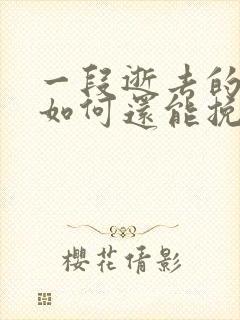 一段逝去的
如何還能挽
櫻花倩影